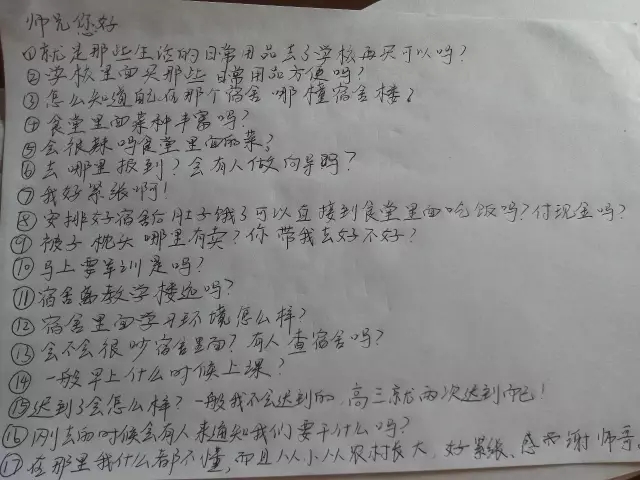 师兄您好
①就是那些生活的日常用品去了学校再买可以吗？
②学校里面买那些日常用品方便吗？
③怎么知道自己在那个宿舍哪橦宿舍楼？
④食堂里面菜种丰富吗？
⑤会很辣吗食堂里面的菜？
⑥去哪里报到？会有人做向导吗？
⑦我好紧张啊！
⑧安排好宿舍后肚子饿了可以直接到食堂里面吃饭吗？付现金吗？
⑨被子枕头哪里有卖？你带我去好不好？
⑩马上要军训是吗？
⑪宿舍离教学楼远吗？
⑫宿舍里面学习环境怎么样？
⑬会不会很吵宿舍里面？有人查宿舍吗？
⑭一般早上什么时候上课？
⑮迟到了会怎么样？一般我不会迟到的，高三就两次迟到而已！
⑯刚去的时候会有人来通知我们要干什么吗？
⑰在那里我什么都不懂，而且从小从农村长大，好紧张、感谢师哥。